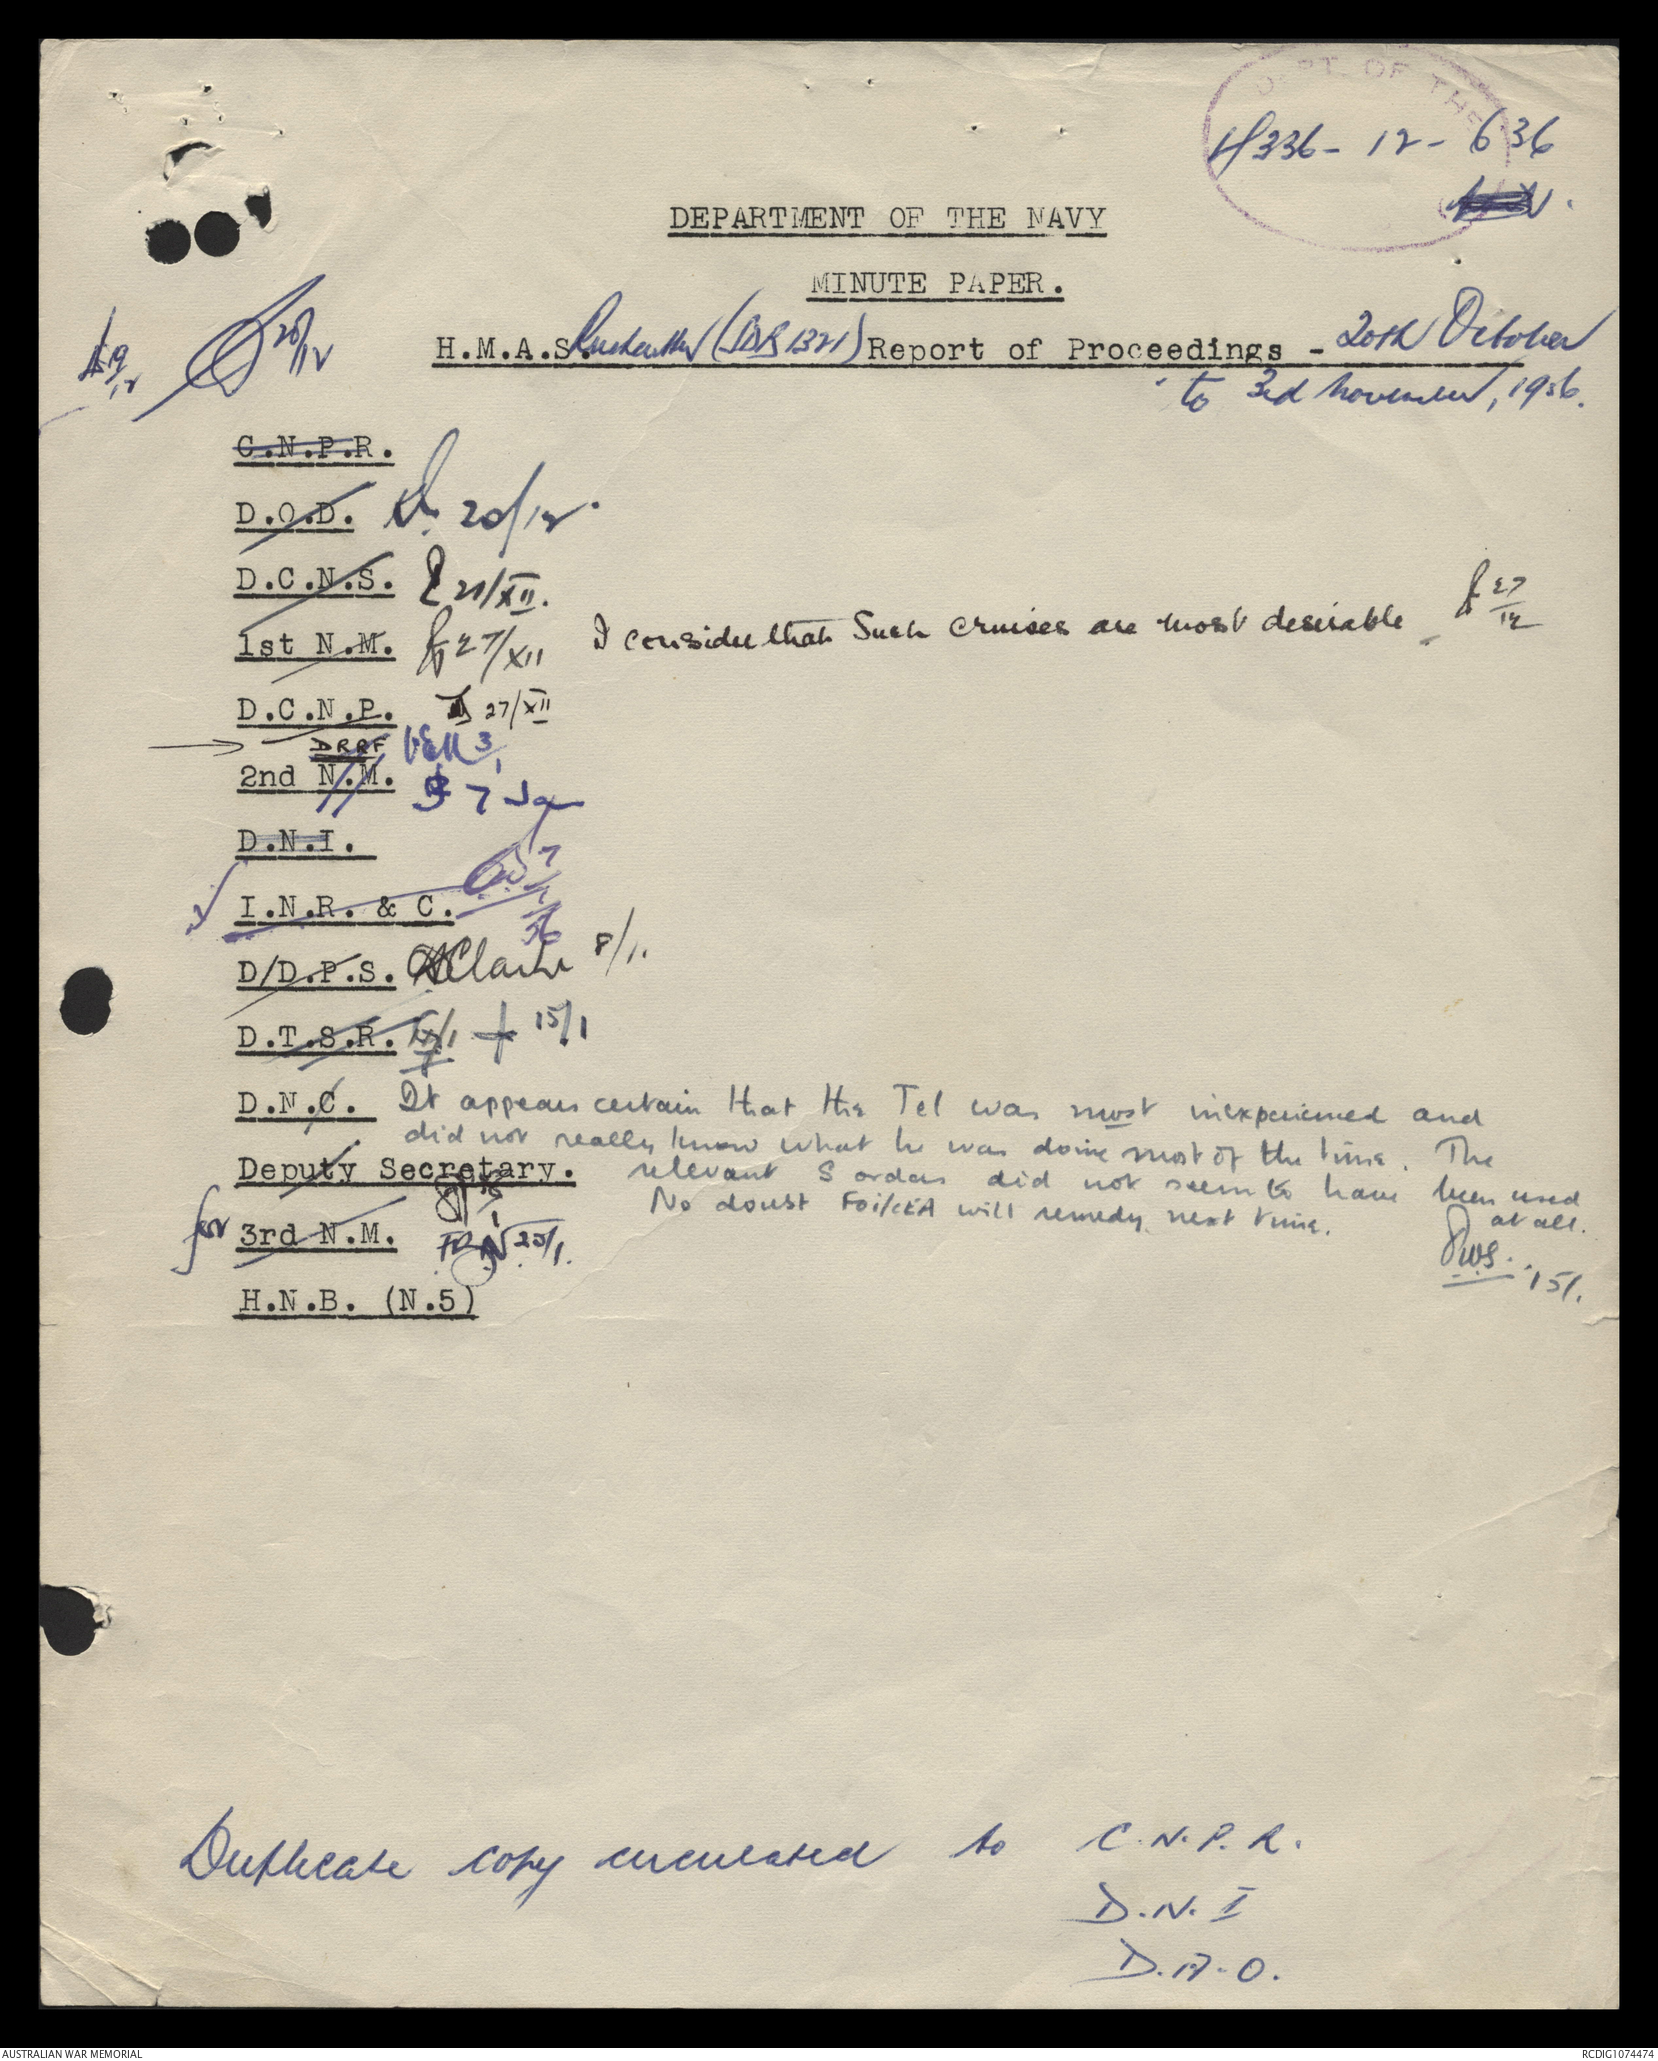 DEPT. OF THE
4336-12-636
DEPARTMENT OF THE NAVY
MINUTE PAPER.
20/12
19/12
H.M.A.S. (SDB 1321) Report of Proceedings - 20th October
to 3rd November, 1956.
C.N.P.R.
D.O.D. 20/12.
D.C.N.S. 21/XII.
1st N.M. 27/XII I consider that such cruises are most desirable 27/12
D.C.N.P. 27/XII
DRRF 3/1
2nd N.M. 7 Jan
D.N.I.
I.N.R. & C. 7/1
D/D.P.S. 8/1.
D.T.S.R. 15/1
D.N.C. It appears certain that the Tel was most inexperienced and
did not really know what he was doing most of the time. The
Deputy Secretary. relevant S orders did not seem to have been used
at all.
No doubt will remedy next time.
for 3rd N.M. 25/1.
15/1.
H.N.B. (N.5)
Duplicate copy circulated to C.N.P.R.
D.N.I
D.A.O.
AUSTRALIAN WAR MEMORIAL
RCDIG1074474